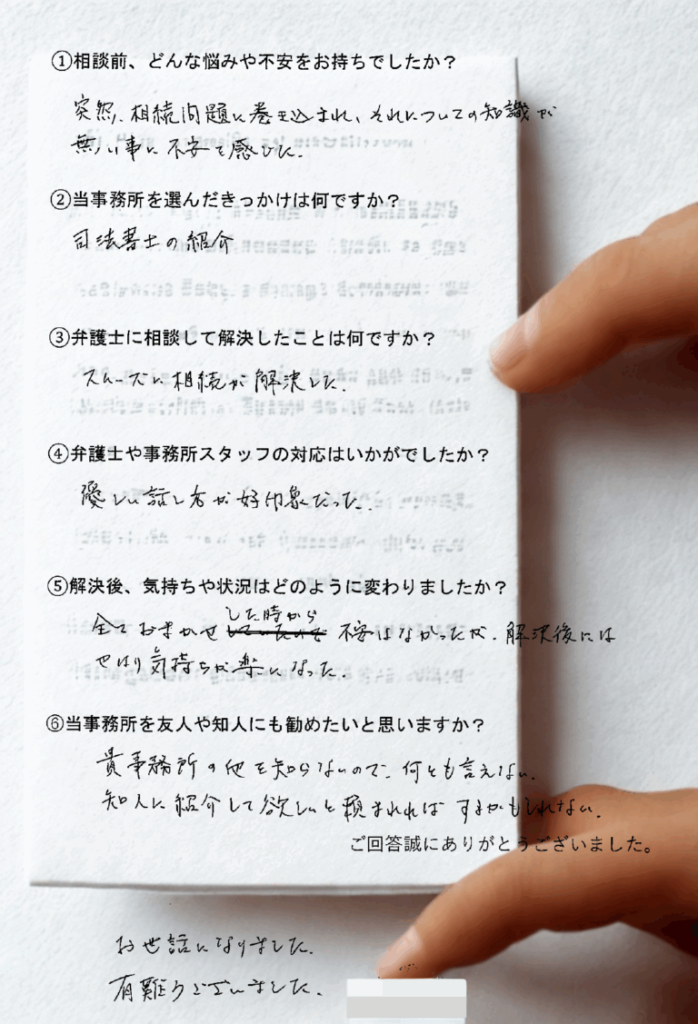 ①相談前、どんな悩みや不安をお持ちでしたか？
突然、相続問題に巻き込まれ、それについての知識が
無い事に不安を感じた.
②当事務所を選んだきっかけは何ですか？
司法書士の紹介
③弁護士に相談して解決したことは何ですか？
スムーズに相続が解決した.
④弁護士や事務所スタッフの対応はいかがでしたか？
優しい話し方が好印象だった.
⑤解決後、気持ちや状況はどのように変わりましたか？
した時から
全ておまかせ 不安はなかったが、解決後には
やはり気持ちが楽になった.
⑥当事務所を友人や知人にも勧めたいと思いますか？
貴事務所の他を知らないので、何とも言えない.
知人に紹介して欲しいと頼まれれば するかもしれない.
ご回答誠にありがとうございました。
お世話になりました.
有難うございました.